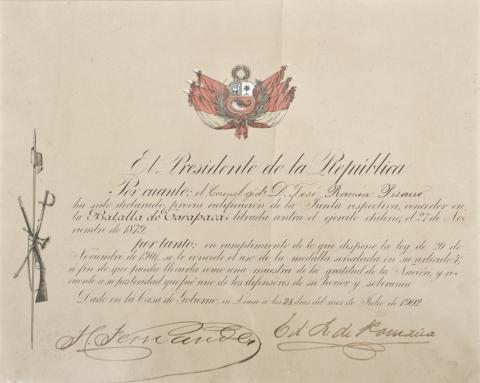 El Presidente de la República
Por cuanto: el Coronel grdo. D. José Ramón Pizarro
ha sido declarado, previa calificación de la Junta respectiva, vencedor en
la Batalla de Tarapacá, librada contra el ejército chileno, el 27 de No-
viembre de 1879,
por tanto: en cumplimiento de lo que dispone la ley de 20 de
Noviembre de 1901, se le concede el uso de la medalla señalada en su artículo 4º,
a fin de que pueda llevarla como una muestra de la gratitud de la Nación, y re-
cuerde a su posteridad que fué uno de los defensores de su honor y soberanía
Dado en la Casa de Gobierno, en Lima a los 28 días del mes de Julio de 1902
Ed. L. de Romaña